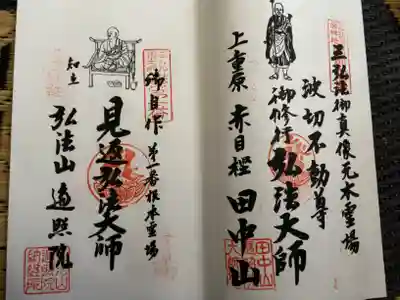 三弘法御真像元木霊場
波切不動尊
御修行弘法大師
上重原 赤目樫 田中山
御自作 第一番根本霊場
見返弘法大師
知立 弘法山 遍照院